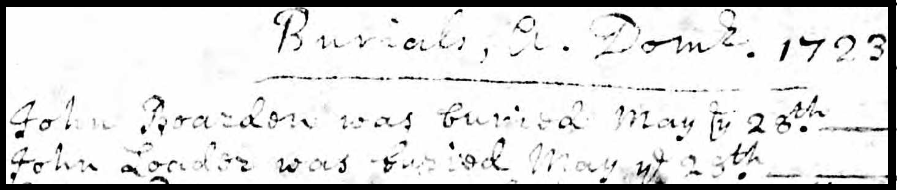 Burials, A. Dom. 1723
John Boarden was buried May ye 28th
John Loader was buried May ye 28th